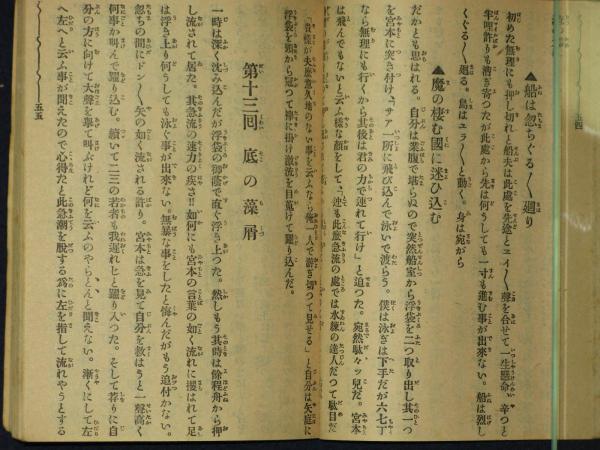 ▲船は忽ちぐる〱廻り
初めた無理にも押し切れと船夫は此處を先途とエイ〱聲を合せて一生懸命辛つと
半町許りも漕ぎ寄つたが此處から先は何うしても一寸も進む事が出來ない。船は烈し
くぐる〱廻る。島はユラ〱と動く。身は宛がら
▲魔の棲む國に迷ひ込む
だかとも思はれる。自分は業腹で堪らぬので突然船室から浮袋を二つ取り出し其一つ
を宮本に突き付け、「サア一所に飛び込んで泳いで渡らう。僕は泳ぎは下手だが六七丁
なら無理にも行くから其後は君の力で連れて行け」と迫つた。宛然駄々ッ兒だ。宮本
は飛んでもないと云ふ樣な顏をして、「迚も此旅急流の處では水練の達人だつて駄目だ
「貴樣が夫旅意久地のない事を云ふなら俺一人で游ぎ切つて見せる」と自分は矢庭に
浮袋を頭から冠つて襷に掛け激流を目蒐けて躍り込んだ。
第十三回 底の藻屑
一時は深く沈み込んだが浮袋の御蔭で直ぐ浮き上つた。然しもう其時は餘程舟から押
し流されて居た。其急流の速力の疾さ!!如何にも宮本の言葉の如く流れに攫はれて足
は浮き上り何うしても泳ぐ事が出來ない。無暴な事をしたと悔んだがもう追付かない。
忽ちの間にドン〱矢の如く流される許り。宮本は急を見て自分を救はうと一聲高く
何事か叫んで躍り込む。續いて二三の若者も我遲れじと躍り入つた。そして若りに自
分の方に向けて大聲を擧て叫ぶけれど何を云ふのやらとんと聞えない。漸くにして左
へ左へと云ふ事が聞えたので心得たと此急潮を脱する爲に左を指して流れやうとする
五五